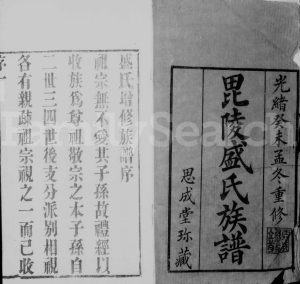 光緒癸未孟冬重修
毘陵盛氏族譜
思成堂珍藏
盛氏增修族譜序
祖宗無不愛其子孫故禮經以
收族爲尊祖敬宗之本子孫自
二世三世四世後支分派别相視
各有親疎祖宗視之一而已收
FamilySearch